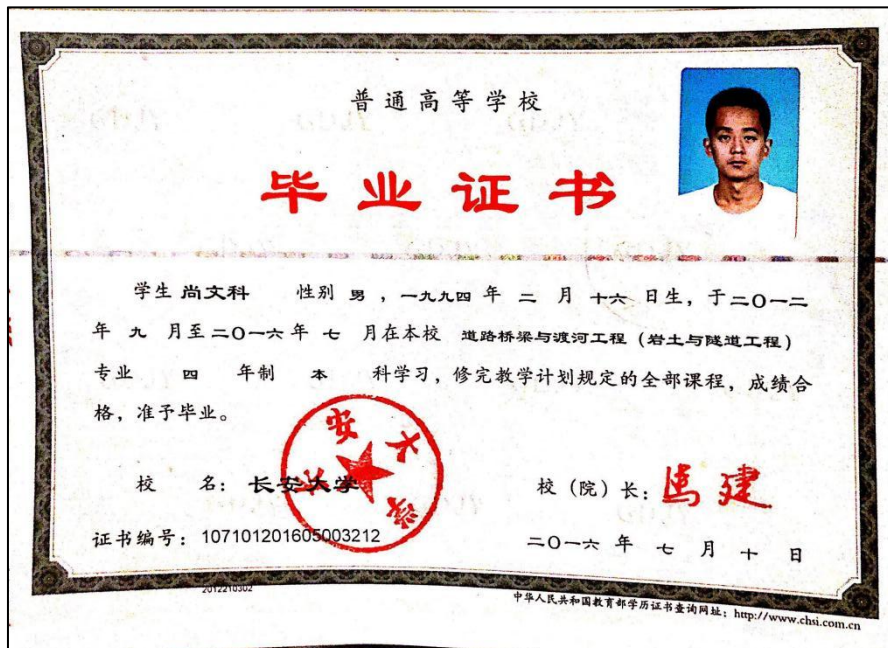 普通高等学校
毕业证书
学生 尚文科 性别 男 ，一九九四 年 二 月 十六 日生，于二〇一二
年 九 月至二〇一六年 七 月在本校 道路桥梁与渡河工程（岩土与隧道工程）
专业 四 年制 本 科学习，修完教学计划规定的全部课程，成绩合
格，准予毕业。
长安大学
校 名：长安大学
校（院）长：马建
证书编号：107101201605003212
二〇一六 年 七 月 十 日
2012210302
中华人民共和国教育部学历证书查询网址：http://www.chsi.com.cn